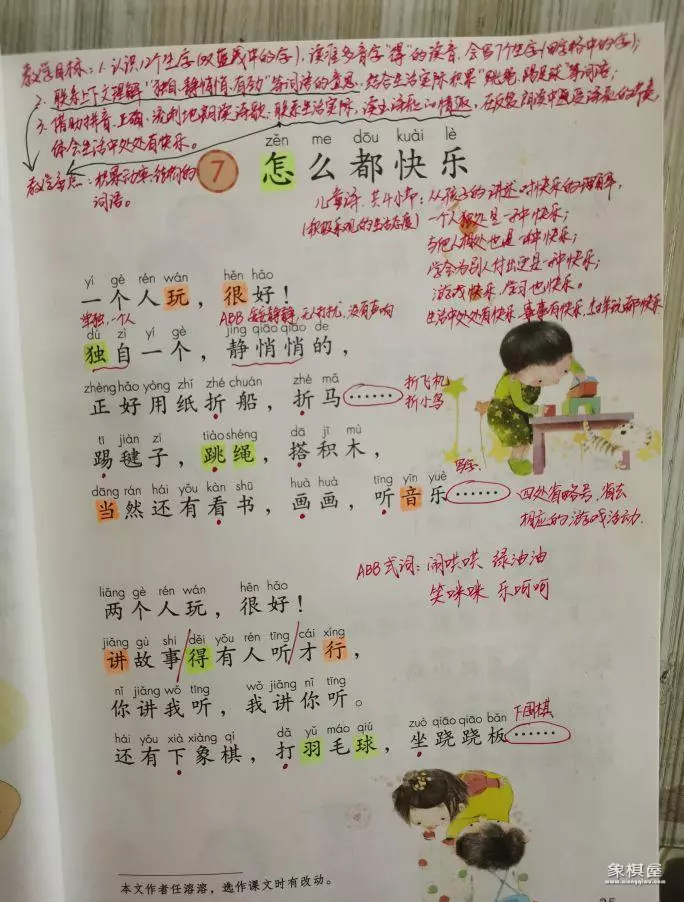 教学目标：1. 认识12个生字(双蓝线中的字)，读准多音字"得"的读音，会写7个生字(田字格中的字)；
2. 联系上下文理解"独自、静悄悄、有劲"等词语的意思，结合生活实际积累"跳绳、踢足球"等词语；
3. 借助拼音，正确、流利地朗读诗歌，联系生活实际，读出诗歌的情感，在反复朗读中感受诗歌的
体会生活中处处有快乐。
教学重点：积累动宾结构的
词语。
zěn me dōu kuài lè
7 怎么都快乐
儿童诗，共4小节：从孩子的讲述对快乐的理解，
(积极乐观的生活态度)
一个人独处是一种快乐；
与他人相处也是一种快乐；
学会为别人付出更是一种快乐；
游戏快乐，学习也快乐。
生活中处处有快乐，事事有快乐，
yí gè rén wán hěn hǎo
一个人玩，很好！
单独，一个人
ABB 安安静静，无人打扰，没有声响
dú zì yí gè jìng qiāo qiāo de
独自一个，静悄悄的，
zhèng hǎo yòng zhǐ zhé chuán zhé mǎ
正好用纸折船，折马……
折飞机
折小鸟
tī jiàn zi tiào shéng dā jī mù
踢毽子，跳绳，搭积木，
dāng rán hái yǒu kàn shū huà huà tīng yīn yuè
当然还有看书，画画，听音乐……
四处省略号，省去
相应的游戏活动.
ABB式词：闹哄哄 绿油油
笑咪咪 乐呵呵
liǎng gè rén wán hěn hǎo
两个人玩，很好！
jiǎng gù shi děi yǒu rén tīng cái xíng
讲故事得有人听才行，
nǐ jiǎng wǒ tīng wǒ jiǎng nǐ tīng
你讲我听，我讲你听。
下围棋
hái yǒu xià xiàng qí dǎ yǔ máo qiú zuò qiāo qiāo bǎn
还有下象棋，打羽毛球，坐跷跷板……
本文作者任溶溶，选作课文时有改动。
象棋屋